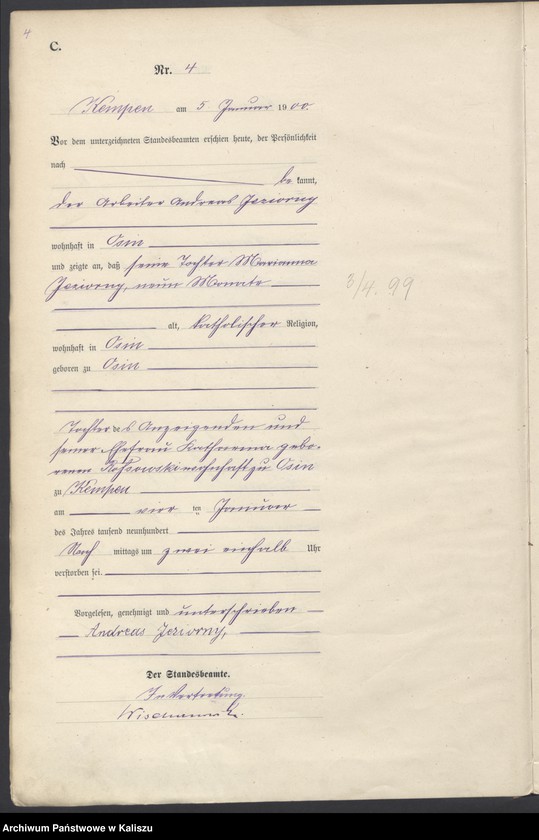 4
C.
Nr. 4
Kempen am 5 Januar 1900.
Vor dem unterzeichneten Standesbeamten erschien heute, der Persönlichkeit
nach
be kannt,
der Arbeiter Andreas Jeziorny
wohnhaft in Osin
und zeigte an, daß seine Tochter Marianna
Jeziorny, neun Monate
3/4. 99
alt, katholischer Religion,
wohnhaft in Osin
geboren zu Osin
Tochter des Anzeigenden und
seiner Ehefrau Katharina gebo-
renen wohnhaft zu Osin
zu Kempen
am vier ten Januar
des Jahres tausend neunhundert
Nach mittags um zwei einhalb Uhr
verstorben sei.
Vorgelesen, genehmigt und unterschrieben
Andreas Jeziorny,
Der Standesbeamte.
In Vertretung
Archiwum Państwowe w Kaliszu